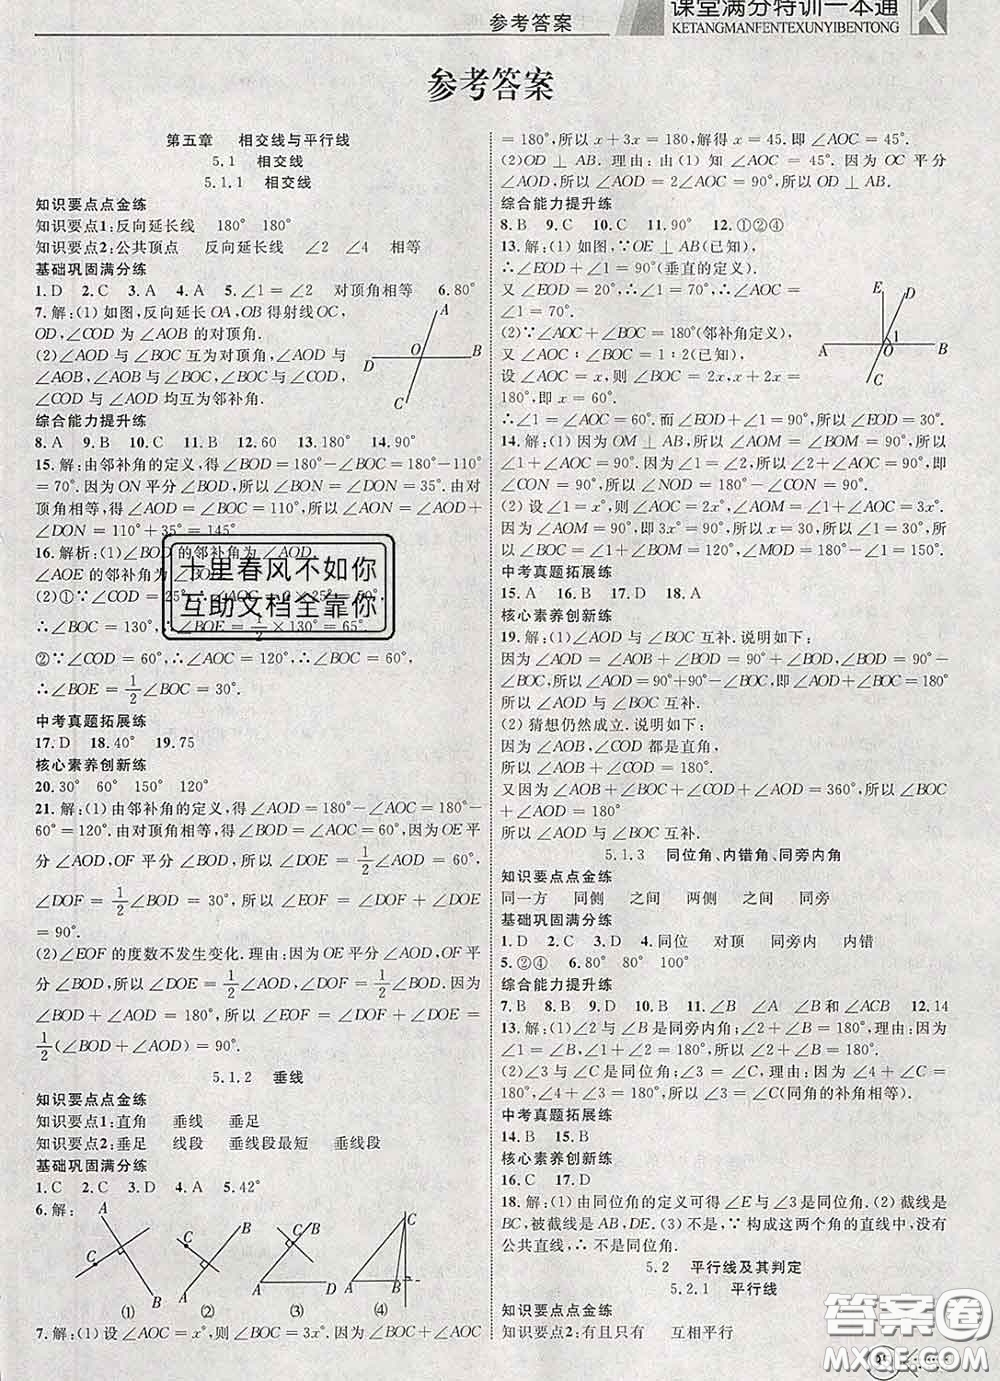 参考答案
课堂满分特训一本通
KETANGMANFENTEXUNYIBENTONG
K
参考答案
第五章　相交线与平行线
5.1　相交线
5.1.1　相交线
知识要点点金练
知识要点1:反向延长线　180°　180°
知识要点2:公共顶点　反向延长线　∠2　∠4　相等
基础巩固满分练
1.D　2.C　3.A　4.A　5.∠1=∠2　对顶角相等　6.80°
7.解:(1)如图,反向延长OA,OB得射线OC,
OD,∠COD为∠AOB的对顶角.
(2)∠AOD与∠BOC互为对顶角,∠AOD与
∠AOB,∠AOB与∠BOC,∠BOC与∠COD,
∠COD与∠AOD均互为邻补角.
A
O
B
D
C
综合能力提升练
8.A　9.B　10.C　11.B　12.60　13.180°　14.90°
15.解:由邻补角的定义,得∠BOD=180°-∠BOC=180°-110°
=70°.因为ON平分∠BOD,所以∠BON=∠DON=35°.由对
顶角相等,得∠AOD=∠BOC=110°,所以∠AON=∠AOD+
∠DON=110°+35°=145°.
16.解析:(1)∠BOD的邻补角为∠AOD,
∠AOE的邻补角为∠BOE.
(2)①∵∠ 2×25°=50°,
∴∠BOC=130°,∴∠BOE=1/2×130°=65°.
②∵∠COD=60°,∴∠AOC=120°,∴∠BOC=60°,
∴∠BOE=1/2∠BOC=30°.
十里春风不如你
互助文档全靠你
中考真题拓展练
17.D　18.40°　19.75
核心素养创新练
20.30°　60°　150°　120°
21.解:(1)由邻补角的定义,得∠AOD=180°-∠AOC=180°-
60°=120°.由对顶角相等,得∠BOD=∠AOC=60°,因为OE平
分∠AOD,OF平分∠BOD,所以∠DOE=1/2∠AOD=60°,
∠DOF=1/2∠BOD=30°,所以∠EOF=∠DOF+∠DOE
=90°.
(2)∠EOF的度数不发生变化.理由:因为OE平分∠AOD,OF平
分∠BOD,所以∠DOE=1/2∠AOD,∠DOF=1/2∠BOD,因为
∠BOD+∠AOD=180°,所以∠EOF=∠DOF+∠DOE=
1/2(∠BOD+∠AOD)=90°.
5.1.2　垂线
知识要点点金练
知识要点1:直角　垂线　垂足
知识要点2:垂足　线段　垂线段最短　垂线段
基础巩固满分练
1.C　2.C　3.D　4.A　5.42°
6.解:
A
C
B
①
C
A
B
②
C
B
A
D
③
C
A
B
④
7.解:(1)设∠AOC=x°,则∠BOC=3x°,因为∠AOC+∠BOC
=180°,所以x+3x=180,解得x=45.即∠AOC=45°.
(2)OD⊥AB.理由:由(1)知∠AOC=45°.因为OC平分
∠AOD,所以∠AOD=2∠AOC=90°,所以OD⊥AB.
综合能力提升练
8.B　9.C　10.C　11.90°　12.①②④
13.解:(1)如图,∵OE⊥AB(已知),
∴∠EOD+∠1=90°(垂直的定义).
又∠EOD=20°,∴∠1=70°,∴∠AOC=
∠1=70°.
(2)∵∠AOC+∠BOC=180°(邻补角定义),
又∵∠AOC:∠BOC=1:2(已知),
设∠AOC=x,则∠BOC=2x,x+2x=
180°,即x=60°.
∴∠1=∠AOC=60°.而∠EOD+∠1=90°,所以∠EOD=30°.
E
D
1
A
O
B
C
14.解:(1)因为OM⊥AB,所以∠AOM=∠BOM=90°,所以∠1
+∠AOC=90°.因为∠1=∠2,所以∠2+∠AOC=90°,即
∠CON=90°,所以∠NOD=180°-∠CON=90°.
(2)设∠1=x°,因为∠AOC=2∠1,所以∠AOC=2x°.因
为∠AOM=90°,即3x°=90°,所以x=30,所以∠1=30°,所
以∠AOC=60°,所以∠BOD=∠AOC=60°.
中考真题拓展练
15.A　16.B　17.D　18.A
核心素养创新练
19.解:(1)∠AOD与∠BOC互补.说明如下:
因为∠AOD=∠AOB+∠BOD=90°+∠BOD,∠BOC=90°-
∠BOD,所以∠AOD=90°+90°-∠BOC,即∠AOD+∠BOC=180°
所以∠AOD与∠BOC互补.
(2)猜想仍然成立.说明如下:
因为∠AOB,∠COD都是直角,
所以∠AOB+∠COD=180°.
又因为∠AOB+∠BOC+∠COD+∠AOD=360°,所以∠BOC
+∠AOD=180°
所以∠AOD与∠BOC互补.
5.1.3　同位角、内错角、同旁内角
知识要点点金练
同一方　同侧　之间　两侧　之间　同旁
基础巩固满分练
1.D　2.C　3.D　4.同位　对顶　同旁内　内错
5.②④　6.80°　80°　100°
综合能力提升练
7.B　8.B　9.D　10.D　11.∠B　∠A　∠B和∠ACB　12.14
13.解:(1)∠2与∠B是同旁内角;∠2+∠B=180°,理由:因为
∠1=∠B,∠2+∠1=180°,所以∠2+∠B=180°.
(2)∠3与∠C是同位角;∠3=∠C,理由:因为∠4+∠C=
180°,∠3+∠4=180°,所以∠3=∠C(同角的补角相等).
中考真题拓展练
14.B　15.B
核心素养创新练
16.C　17.D
18.解:(1)由同位角的定义可得∠E与∠3是同位角.(2)截线是
BC,被截线是AB,DE.(3)不是,∵构成这两个角的直线中,没有
公共直线,∴不是同位角.
5.2　平行线及其判定
5.2.1　平行线
知识要点点金练
知识要点2:有且只有　互相平行
答案圈
MXQE.COM